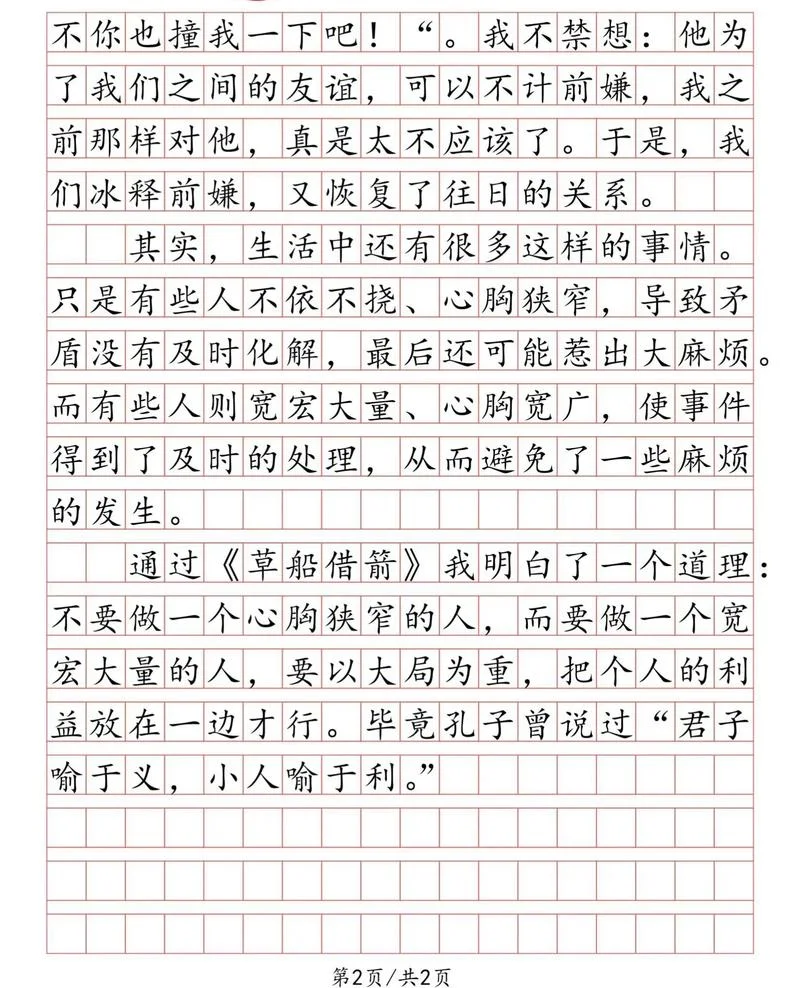 不你也撞我一下吧！“。我不禁想：他为
了我们之间的友谊，可以不计前嫌，我之
前那样对他，真是太不应该了。于是，我
们冰释前嫌，又恢复了往日的关系。
其实，生活中还有很多这样的事情。
只是有些人不依不挠、心胸狭窄，导致矛
盾没有及时化解，最后还可能惹出大麻烦。
而有些人则宽宏大量、心胸宽广，使事件
得到了及时的处理，从而避免了一些麻烦
的发生。
通过《草船借箭》我明白了一个道理：
不要做一个心胸狭窄的人，而要做一个宽
宏大量的人，要以大局为重，把个人的利
益放在一边才行。毕竟孔子曾说过“君子
喻于义，小人喻于利。”
第2页/共2页